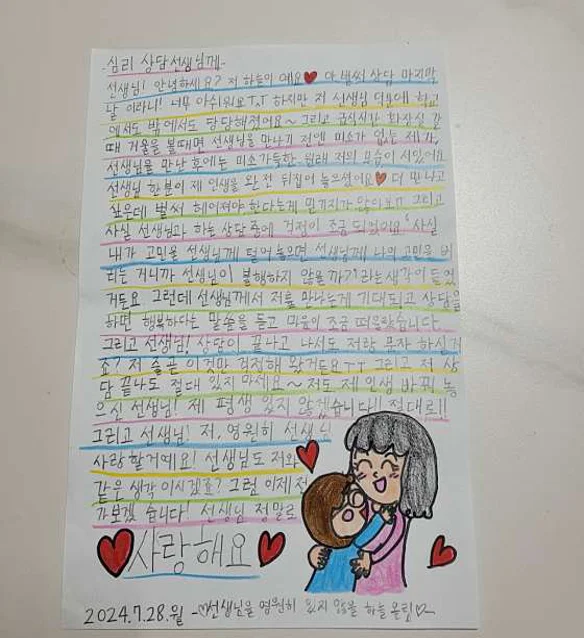 심리 상담선생님께
선생님! 안녕하세요? 저 하늘이예요♥ 아 벌써 상담 마지막
날 이라니! 너무 아쉬워요TT 하지만 저 선생님 덕분에 학교
에서도 밖에서도 당당해졌어요~ 그리고 급식시간 화장실 갈
때 거울을 볼때면 선생님을 만나기 전엔 미소가 없는 제가,
선생님을 만난 후에는 미소가득한 원래 저의 모습이 서있어요
선생님 한분이 제 인생을 완전 뒤집어 놓으셨어요♥ 더 만나고
싶은데 벌써 헤어져야 한다는게 믿기지가 않아요!! 그리고
사실 선생님과 하는 상담 중에 걱정이 조금 되었어요 '사실
내가 고민을 선생님께 털어 놓으면 선생님께 나의 고민을 버
리는 거니까 선생님이 불행하지 않을까?'라는 생각이 들었
거든요 그런데 선생님께서 저를 만나는게 기대되고 상담을
하면 행복하다는 말씀을 듣고 마음이 조금 떠올랐습니다
그리고 선생님! 상담이 끝나고 나서도 저랑 문자 하실거
죠? 저 슬픈 이것만 걱정해 왔거든요TT 그리고 저 상
담 끝나도 절대 잊지 마세요~ 저도 제 인생 바꿔 놓
으신 선생님! 제 평생 잊지 않겠습니다!! 절대로!!
그리고 선생님! 저, 영원히 선생님
사랑할거예요! 선생님도 저와
같은 생각 이시겠죠? 그럼 이제 전
가보겠 습니다! 선생님 정말로
사랑해요
2024.7.28.월 -♡선생님을 영원히 잊지 않을 하늘 올림♡-